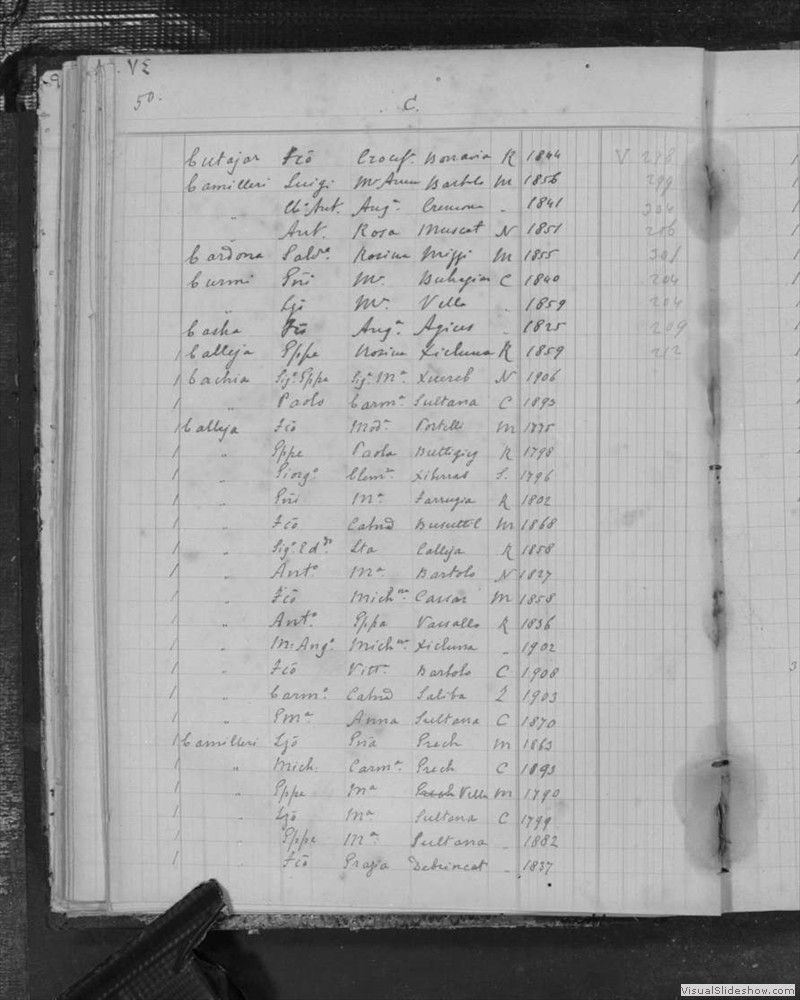 50.
C.
Cutajar Fcō Crocif. Bonavia K 1844 V 298
Camilleri Luigi Mª Anna Bartolo M 1856 299
" Ch. Ant. Angª Cremona " 1841 304
" Ant. Rosa Muscat N 1851 206
Cardona Salvr. Rosina Mizzi M 1855 301
Curmi Pñi Mª Buhagiar C 1840 204
" Ljō Mª Vella " 1859 204
Casha Fcō Angª Agius " 1825 209
1 Calleja Gppe Rosina Xicluna K 1859 212
1 Cachia Sigr Gppe Sigª Mª Xuereb N 1906
1 " Paolo Carmª Sultana C 1893
1 Calleja Fcō Modª Portelli M
1 " Gppe Paola Buttigieg K 1798
1 " Giorgº Clemª Xiberras S. 1796
1 " Pñi Mª Farrugia K 1802
1 " Fcō Catnd Busuttil M 1868
1 " Sigr Edrº Lta Calleja K 1858
1 " Antº Mª Bartolo N 1827
1 " Fcō Michnª Cassar M 1858
1 " Antº Gppa Vassallo K 1836
1 " M. Angº Michnª Xicluna " 1902
1 " Fcō Vittª Bartolo C 1908
1 " Carmº Catnd Saliba Z 1903
1 " Emª Anna Sultana C 1870
1 Camilleri Ljō Pña Grech M 1863
1 " Mich. Carmª Grech C 1893
1 " Gppe Mª Vella M 1790
1 " Ljō Mª Sultana C 1799
1 Gppe Mª Sultana " 1882
1 Fcō Grazia Debrincat " 1837
VisualSlideshow.com